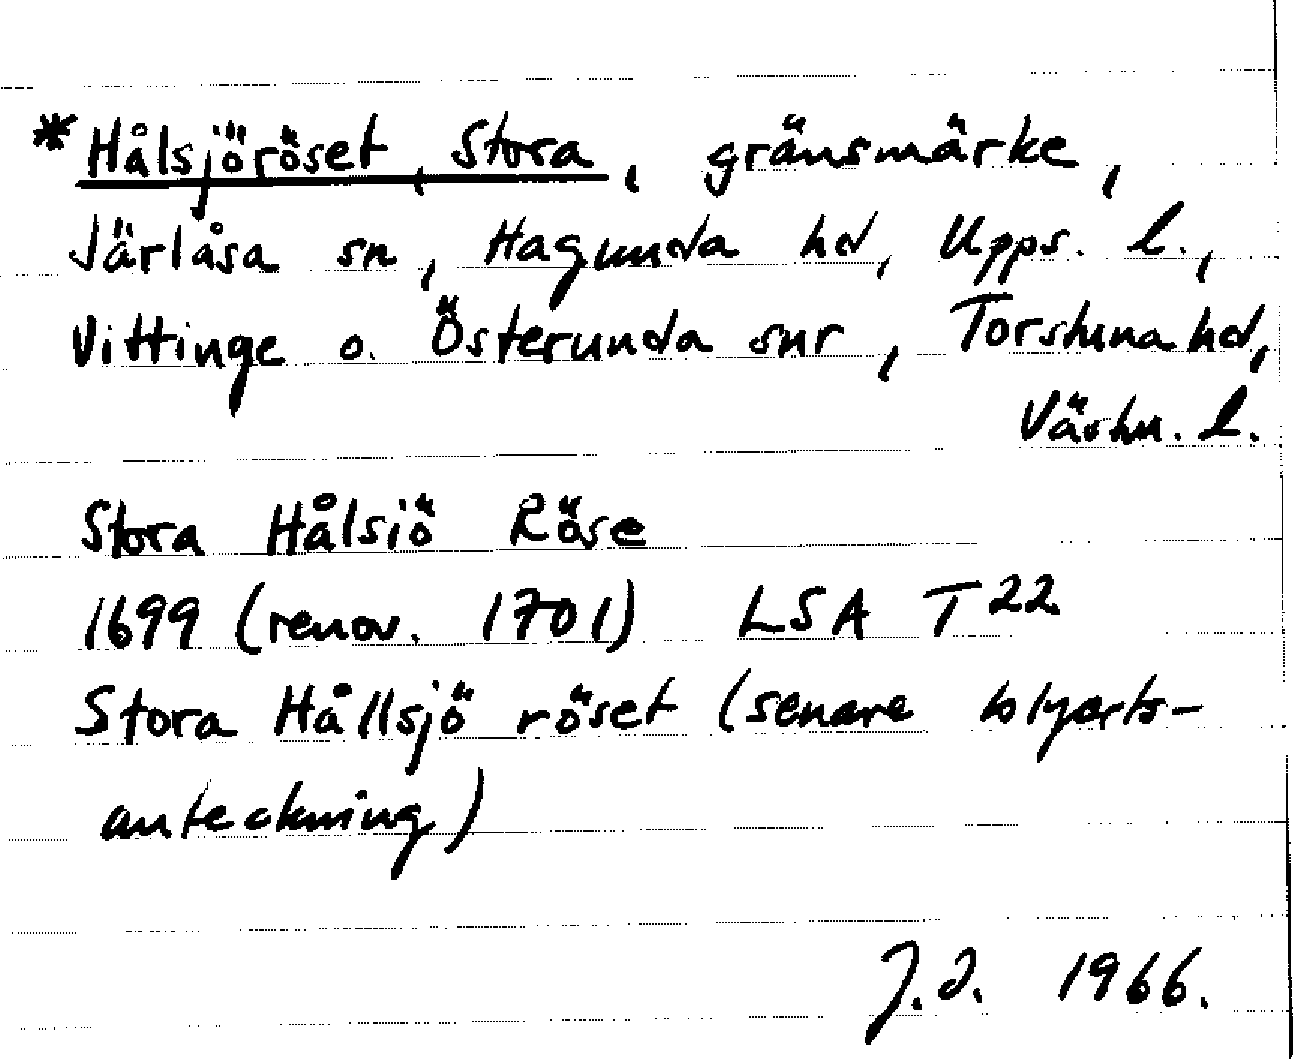 *Hålsjöröset, Stora, gränsmärke,
Järlåsa sn, Hagunda hd, Upps. l.,
Vittinge o. Österunda snr, Torstuna hd,
Västm. l.
Stora Hålsiö Röse
1699 (renov. 1701) LSA T 22
Stora Hållsjö röset (senare blyerts-
anteckning)
J.J. 1966.